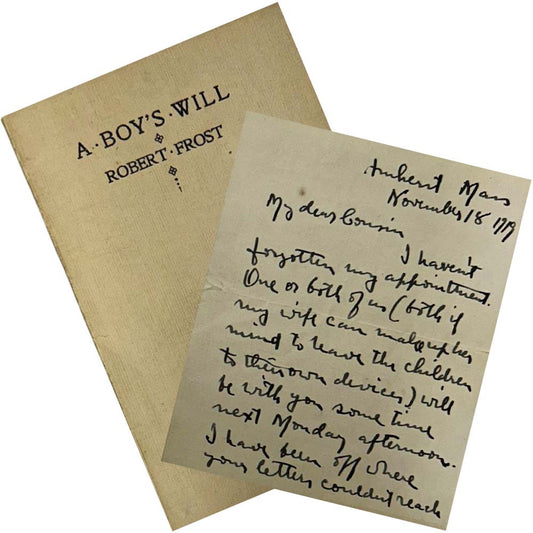 A·BOY'S·WILL
ROBERT·FROST
Amherst Mass
November 18 1919
My dear Cousin
I haven't
forgotten my appointment.
One or both of us (both if
my wife can make up her
mind to leave the children
to their own devices) will
be with you some time
next Monday afternoon.
I have been off where
your letters couldn't reach